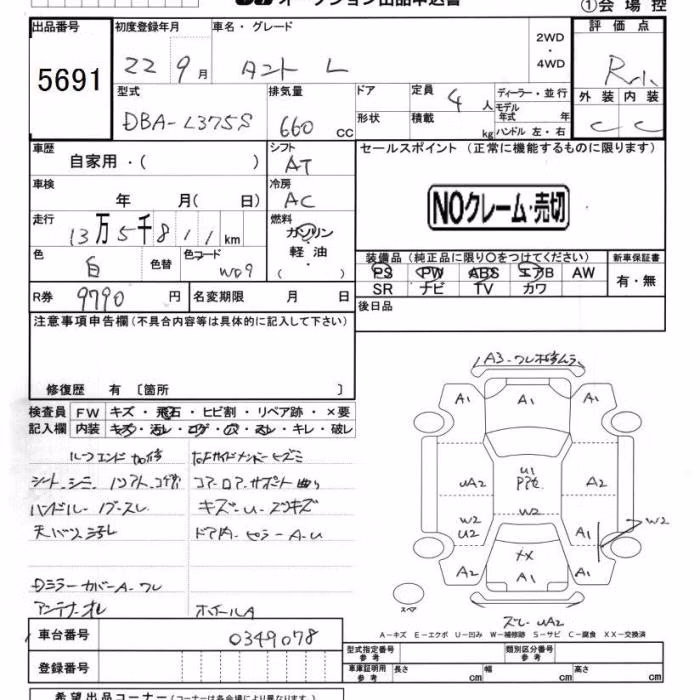 オークション出品申込書
①会場控
出品番号
5691
初度登録年月
22 9月
車名・グレード
タント L
2WD
・
4WD
評価点
外装 内装
C C
型式
DBA-L375S
排気量
660 cc
ドア
形状
定員 4人
積載 kg
ディーラー・並行
モデル年式 年
ハンドル 左・右
車歴
自家用・( )
シフト
AT
セールスポイント (正常に機能するものに限ります)
NOクレーム・売切
車検
年 月( 日)
冷房
AC
走行
13万5千811km
燃料
ガソリン
軽油
( )
色
白
色替
色コード
W09
装備品 (純正品に限り○をつけてください)
PS PW ABS エアB AW
SR ナビ TV カワ
新車保証書
有・無
R券 9790円
名変期限 月 日
後日品
注意事項申告欄(不具合内容等は具体的に記入して下さい)
修復歴 有 〔箇所 〕
検査員 FW キズ・飛石・ヒビ割・リペア跡・×要
記入欄 内装 キズ・汚レ・コゲ・穴・スレ・キレ・破レ
シート シミ
ハンドル
キズ-U-スリキズ
ドア内・ピラーA-U
DミラーカバーA-ワレ
アンテナオレ
ホイールA
A3-ワレ
A1 A1 A1
U1
UA2 A2
W2
W2
U2 A1 W2
A2 A1 A1
スペア
UA2
A-キズ E-エクボ U-凹み W-補修跡 S-サビ C-腐食 XX-交換済
車台番号
0349078
登録番号
型式指定番号
参考
類別区分番号
参考
車庫証明用
参考
長さ cm 幅 cm 高さ cm
希望出品コーナー(コーナーは各会場により異なります)